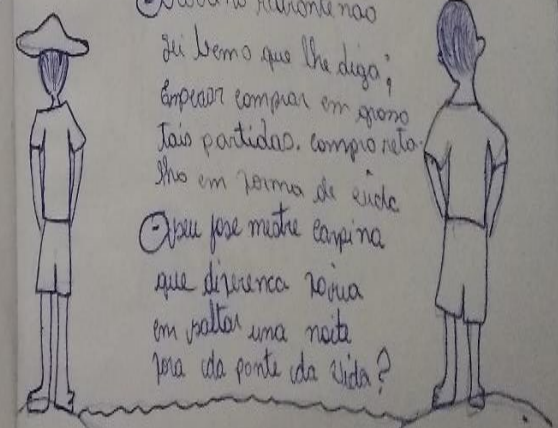 não
sei bemo que lhe diga;
comprar em groso
tais partidas. compro reta-
lho em forma de
- seu jose mestre carpina
que diferenca faria
em saltar uma noite
fora da ponte da vida?